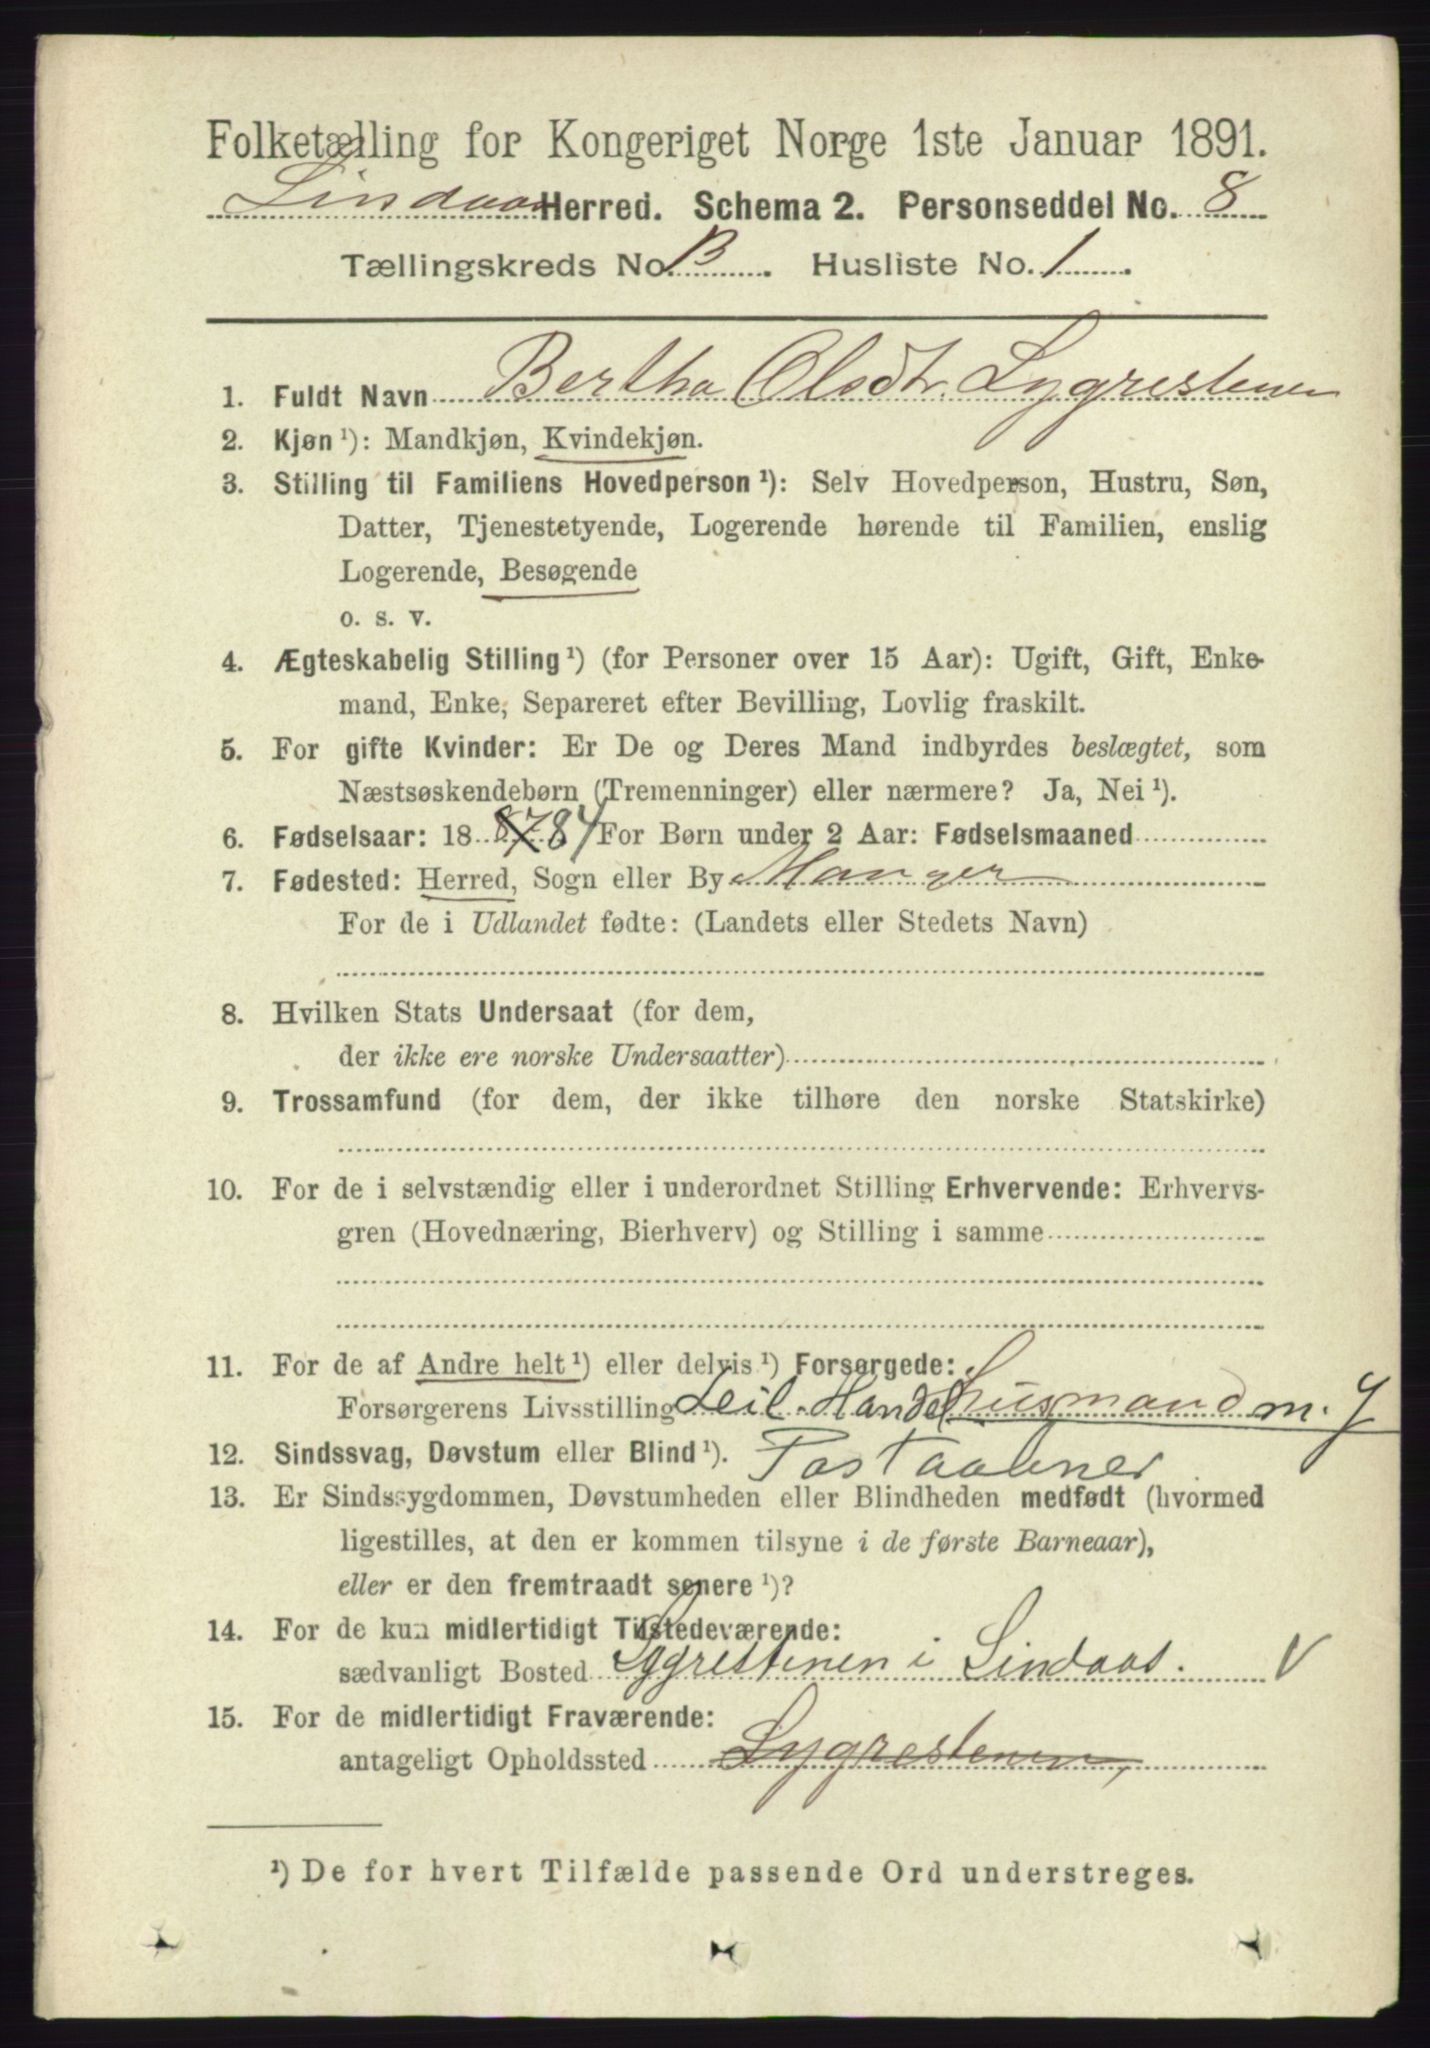 Folketælling for Kongeriget Norge 1ste Januar 1891.
Lindaas Herred. Schema 2. Personseddel No. 8
Tællingskreds No. B. Husliste No. 1.
1. Fuldt Navn Bertha Olsdtr. Lygrestenen
2. Kjøn ¹): Mandkjøn, Kvindekjøn.
3. Stilling til Familiens Hovedperson ¹): Selv Hovedperson, Hustru, Søn,
Datter, Tjenestetyende, Logerende hørende til Familien, enslig
Logerende, Besøgende
o. s. v.
4. Ægteskabelig Stilling ¹) (for Personer over 15 Aar): Ugift, Gift, Enke-
mand, Enke, Separeret efter Bevilling, Lovlig fraskilt.
5. For gifte Kvinder: Er De og Deres Mand indbyrdes beslægtet, som
Næstsøskendebørn (Tremenninger) eller nærmere? Ja, Nei ¹).
6. Fødselsaar: 18 87 84 For Børn under 2 Aar: Fødselsmaaned
7. Fødested: Herred, Sogn eller By Manger
For de i Udlandet fødte: (Landets eller Stedets Navn)
8. Hvilken Stats Undersaat (for dem,
der ikke ere norske Undersaatter)
9. Trossamfund (for dem, der ikke tilhøre den norske Statskirke)
10. For de i selvstændig eller i underordnet Stilling Erhvervende: Erhvervs-
gren (Hovednæring, Bierhverv) og Stilling i samme
11. For de af Andre helt ¹) eller delvis ¹) Forsørgede:
Forsørgerens Livsstilling Leil. Handel Husmand m. J
12. Sindssvag, Døvstum eller Blind ¹). Postaabner
13. Er Sindssygdommen, Døvstumheden eller Blindheden medfødt (hvormed
ligestilles, at den er kommen tilsyne i de første Barneaar),
eller er den fremtraadt senere ¹)?
14. For de kun midlertidigt Tilstedeværende:
sædvanligt Bosted Lygrestenen i Lindaas. V
15. For de midlertidigt Fraværende:
antageligt Opholdssted Lygrestenen,
¹) De for hvert Tilfælde passende Ord understreges.